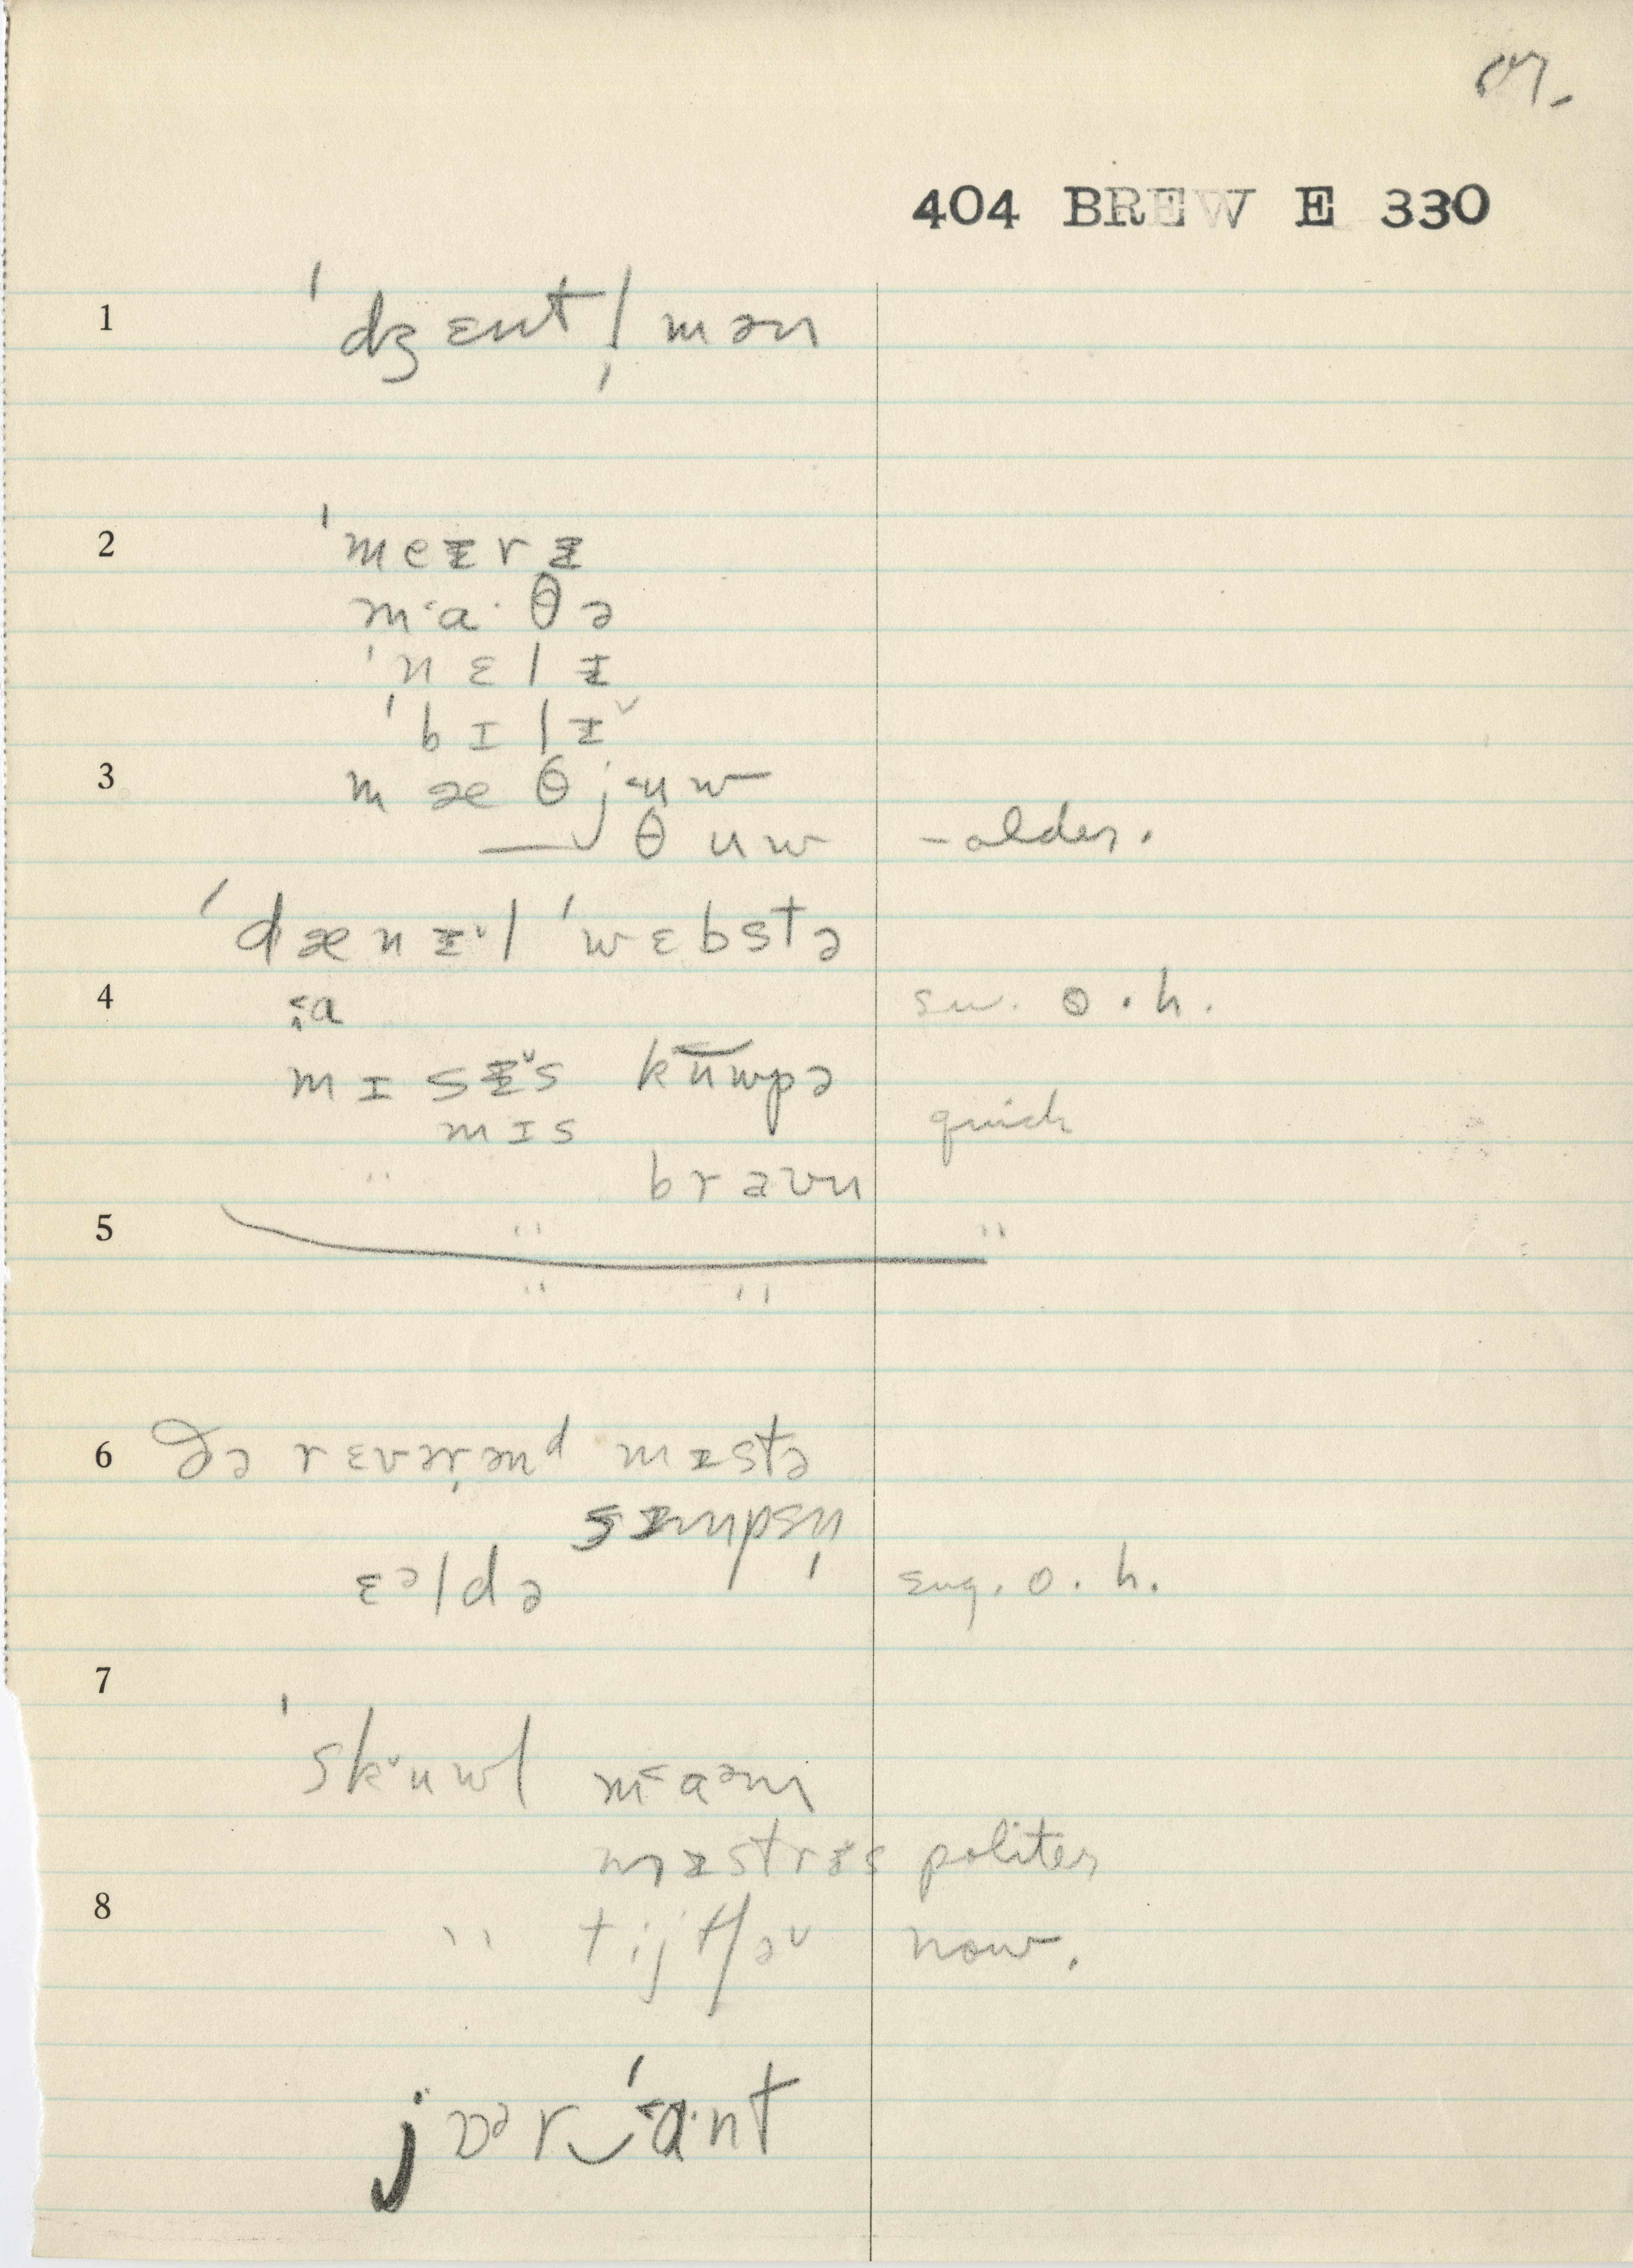 67.
404 BREW E 330
1 ˈdʒɛntl̩mən
2 ˈmeᵻrᵻ
m˂a·θə
ˈnɛlᵻ
ˈbɪlᵻ˅
3 mæθj˂uw
— θuw - older.
ˈdænᵻ˅l ˈwɛbstə
4 ˂a sw. o.h.
mɪsᵻ˅s kuwpə
mɪs quick
" braʊn
5 " "
" "
6 ðə rɛvər̩ənᵈ mᵻstə
sᵻmpsn̩
ɛᵊldə eng. o.h.
7
ˈsk˅uwl m˂aᵊm
mᵻstrᵻ˅s politer
8 " tijtʃə˅ now.
jɒᵊr‿ˈ˂a·nt